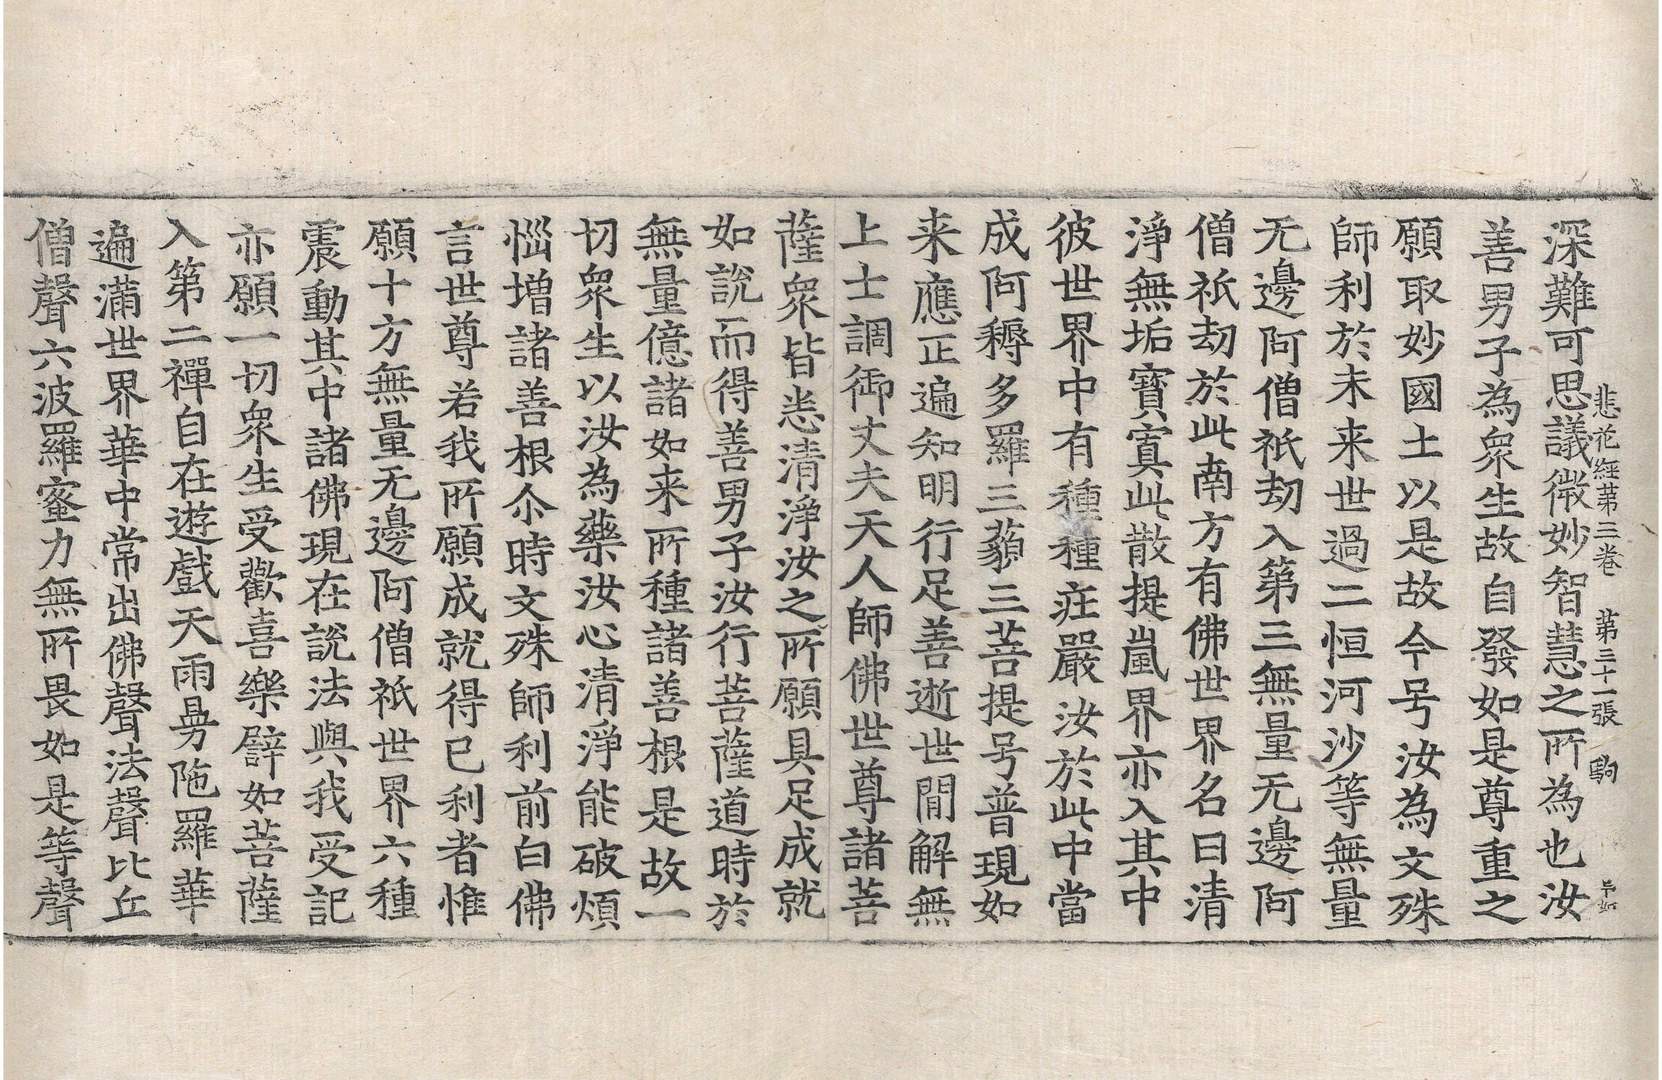 悲花経第三巻 第三十一張 駒
深難可思議微妙智慧之所為也汝
善男子為衆生故自發如是尊重之
願取妙國土以是故今号汝為文殊
師利於未来世過二恒河沙等無量
无邊阿僧祇劫入第三無量无邊阿
僧祇劫於此南方有佛世界名曰清
淨無垢寶寘此散提嵐界亦入其中
彼世界中有種種莊嚴汝於此中當
成阿耨多羅三藐三菩提号普現如
来應正遍知明行足善逝世間解無
上士調御丈夫天人師佛世尊諸菩
薩衆皆悉清淨汝之所願具足成就
如說而得善男子汝行菩薩道時於
無量億諸如来所種諸善根是故一
切衆生以汝為藥汝心清淨能破煩
惱增諸善根尒時文殊師利前白佛
言世尊若我所願成就得己利者惟
願十方無量无邊阿僧祇世界六種
震動其中諸佛現在說法與我受記
亦願一切衆生受歡喜樂辟如菩薩
入第二禪自在遊戲天雨曼陁羅華
遍滿世界華中常出佛聲法聲比丘
僧聲六波羅蜜力無所畏如是等聲